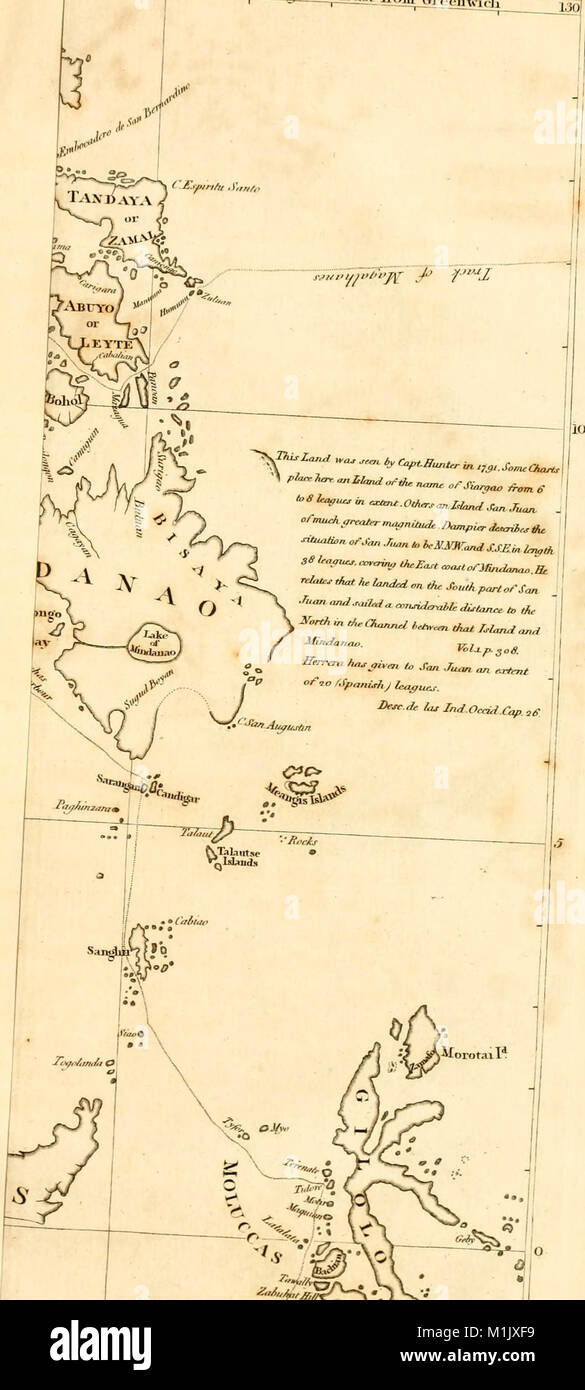 East from Greenwich
130
Embocadero de San Bernardino
C. Espiritu Santo
TANDAYA
or
ZAMAL
Track of Magalhanes
Carigara
Manuani
Humunu
Zuluan
ABUYO
or
LEYTE
Cabalian
Panoan
Masagua
Bohol
Camiguan
10
This Land was seen by Capt. Hunter in 1791. Some Charts
place here an Island of the name of Siargao from 6
to 8 leagues in extent. Others an Island San Juan
of much greater magnitude. Dampier describes the
situation of San Juan to be N.N.W. and S.S.E. in length
38 leagues, covering the East coast of Mindanao. He
relates that he landed on the South part of San
Juan and sailed a considerable distance to the
North in the Channel between that Island and
Mindanao. Vol. 1. p. 308.
Herrera has given to San Juan an extent
of 20 (Spanish) leagues.
Desc. de las Ind. Occid. Cap. 26
Surigao
Butuan
Cagayan
BISAYA
DANAO
Lake
of
Mindanao
Sugud Boyan
C. San Augustin
Sarangan
Candigar
Meangis Islands
Paghinzara
Talaut
Talautse
Islands
Rocks
5
Cabiao
Sanghir
Siao
Togolanda
Zamafo
Morotai I.d
GILOLO
Tyfor
Myo
Terenate
Tidore
Motir
Maquian
MOLUCCAS
Latalata
Geby
S
0
Bachian
Tawally
Zabuhat Hill
alamy
alamy stock photo
M1JXF9
www.alamy.com